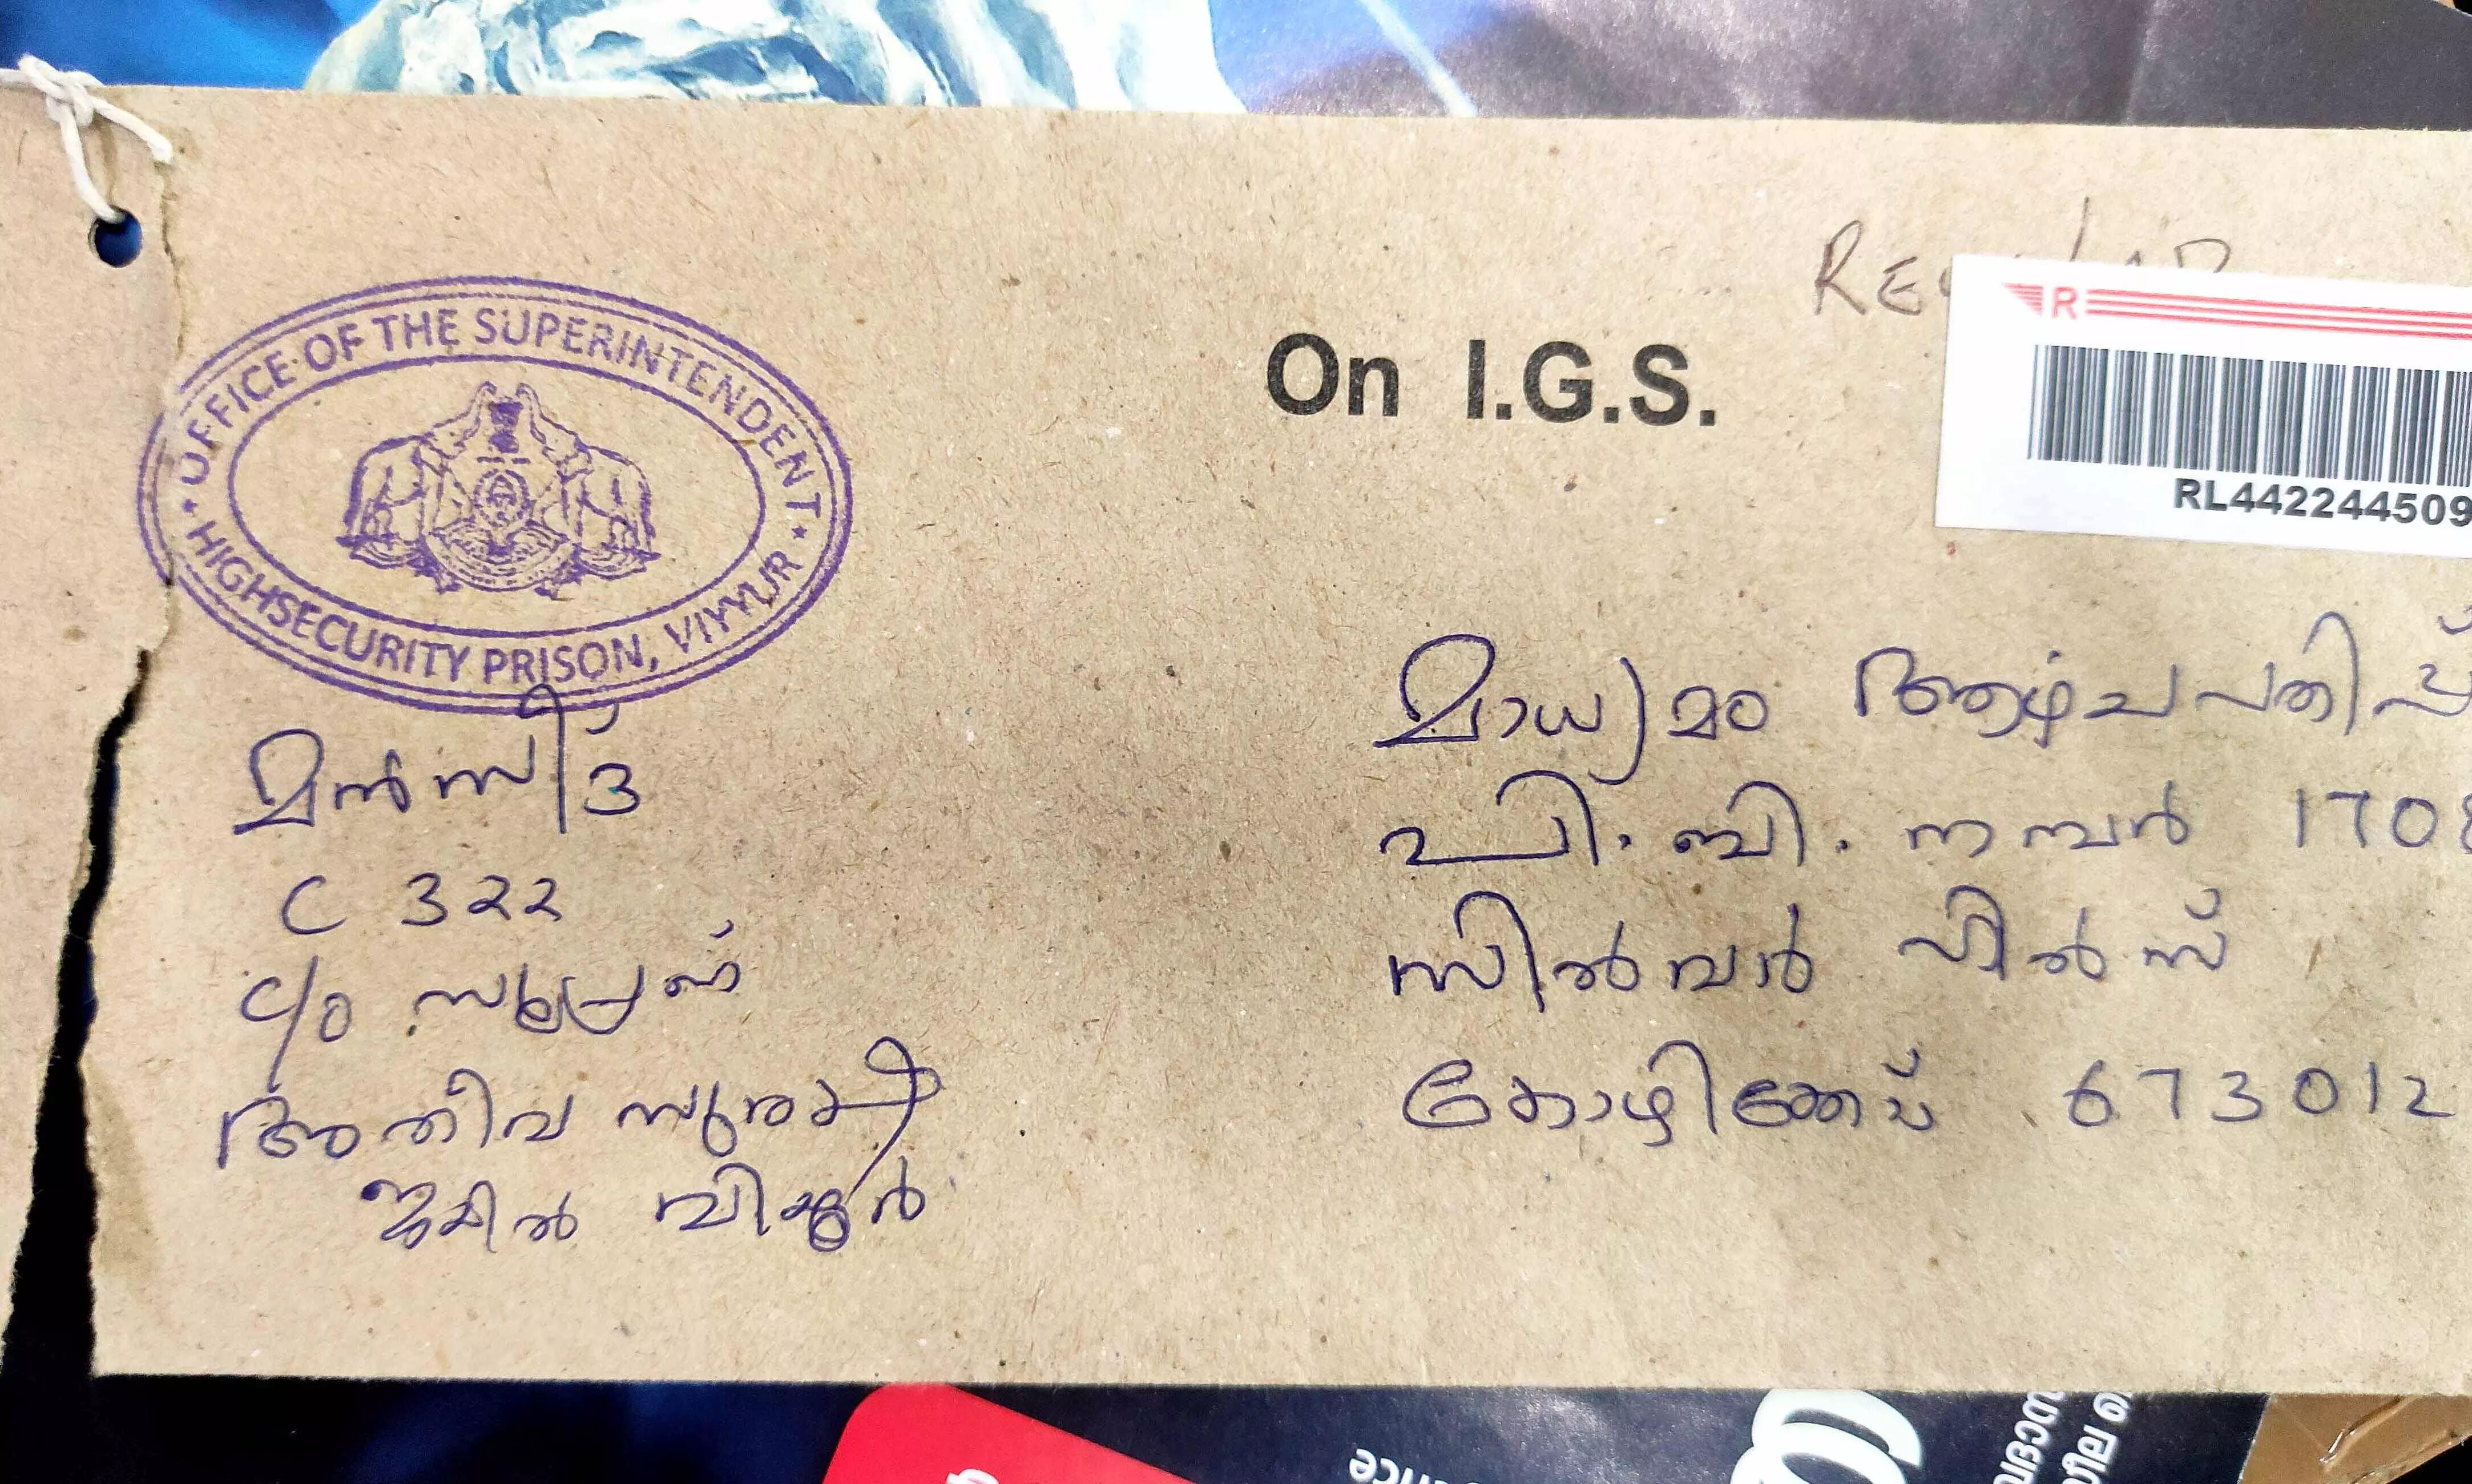 OFFICE OF THE SUPERINTENDENT
HIGHSECURITY PRISON, VIYYUR
On I.G.S.
R
RL442244509
മൻസീദ്
C 322
C/o സൂപ്രണ്ട്
അതീവ സുരക്ഷാ
ജയിൽ വിയ്യൂർ
മാധ്യമം ആഴ്ചപതിപ്പ്
പി. ബി. നമ്പർ 1708
സിൽവർ ഹിൽസ്
കോഴിക്കോട് 673012